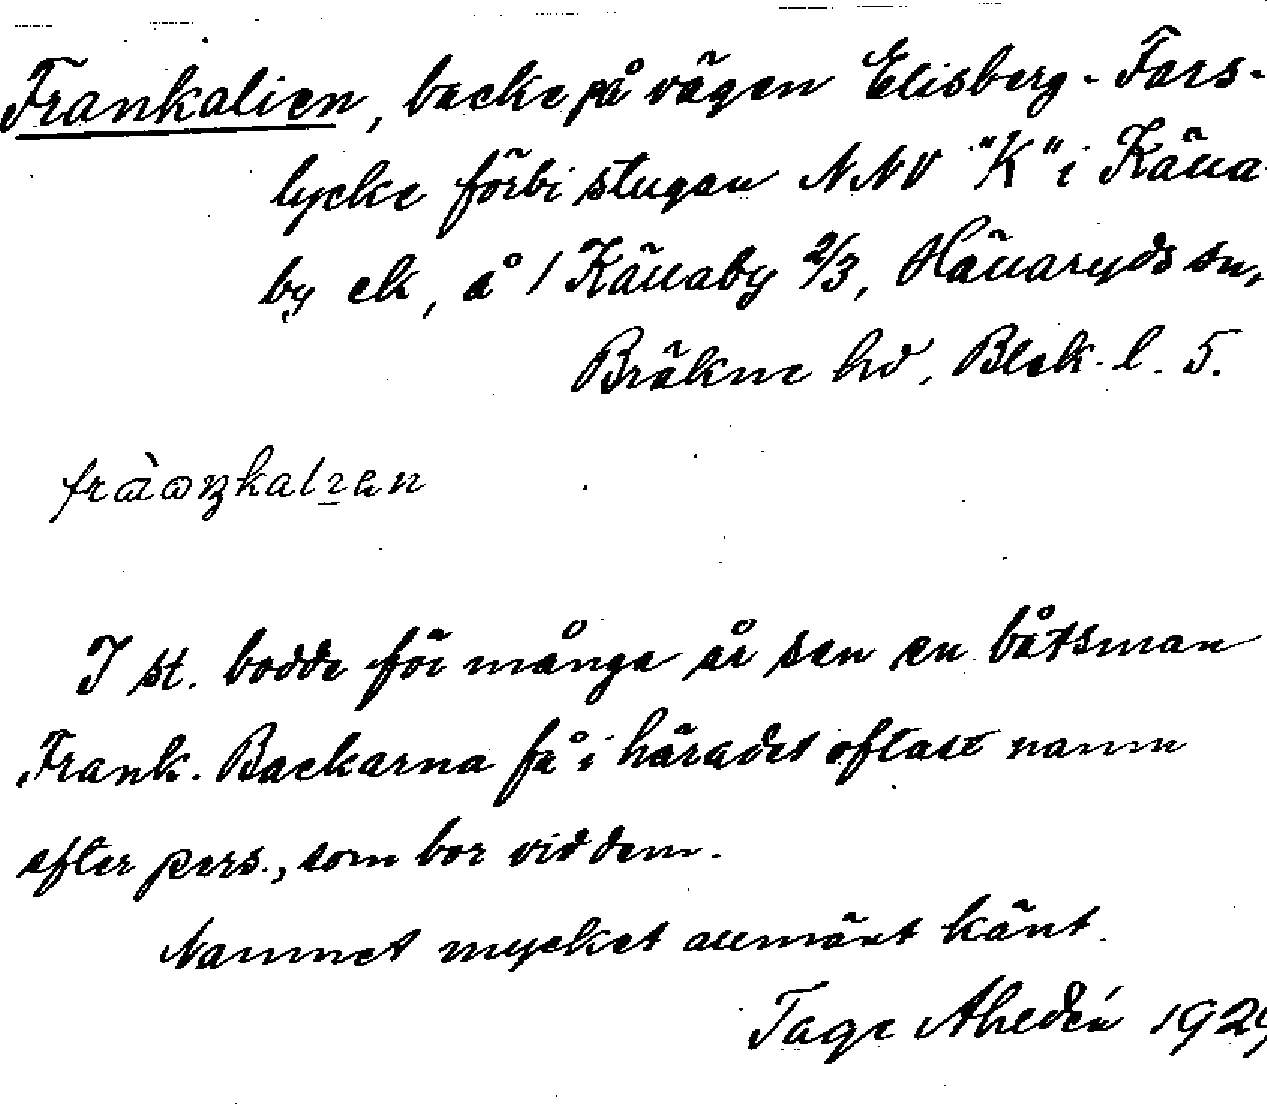 Frankalien, backe på vägen Elisberg - Fors-
lycke förbi stugan NNV "K" i Källa-
by ek, å 1 Källaby 2/3, Hällaryds sn,
Bräkne hd, Blek. l. 5.
I st. bodde för många år sen en båtsman
Frank. Backarna få i häradet oftast namn
efter pers., som bor vid dem.
Namnet mycket allmänt känt.
Tage Ahldén 1929